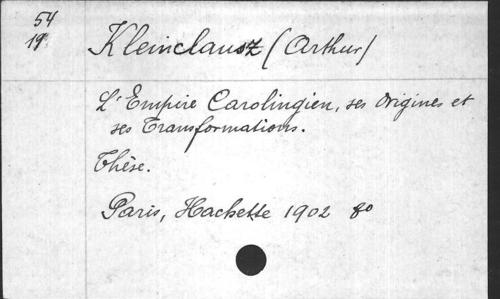 54
19
Kleinclausz (Arthur)
L'Empire Carolingien, ses Origines et
ses Transformations.
Thèse.
Paris, Hachette 1902 8o